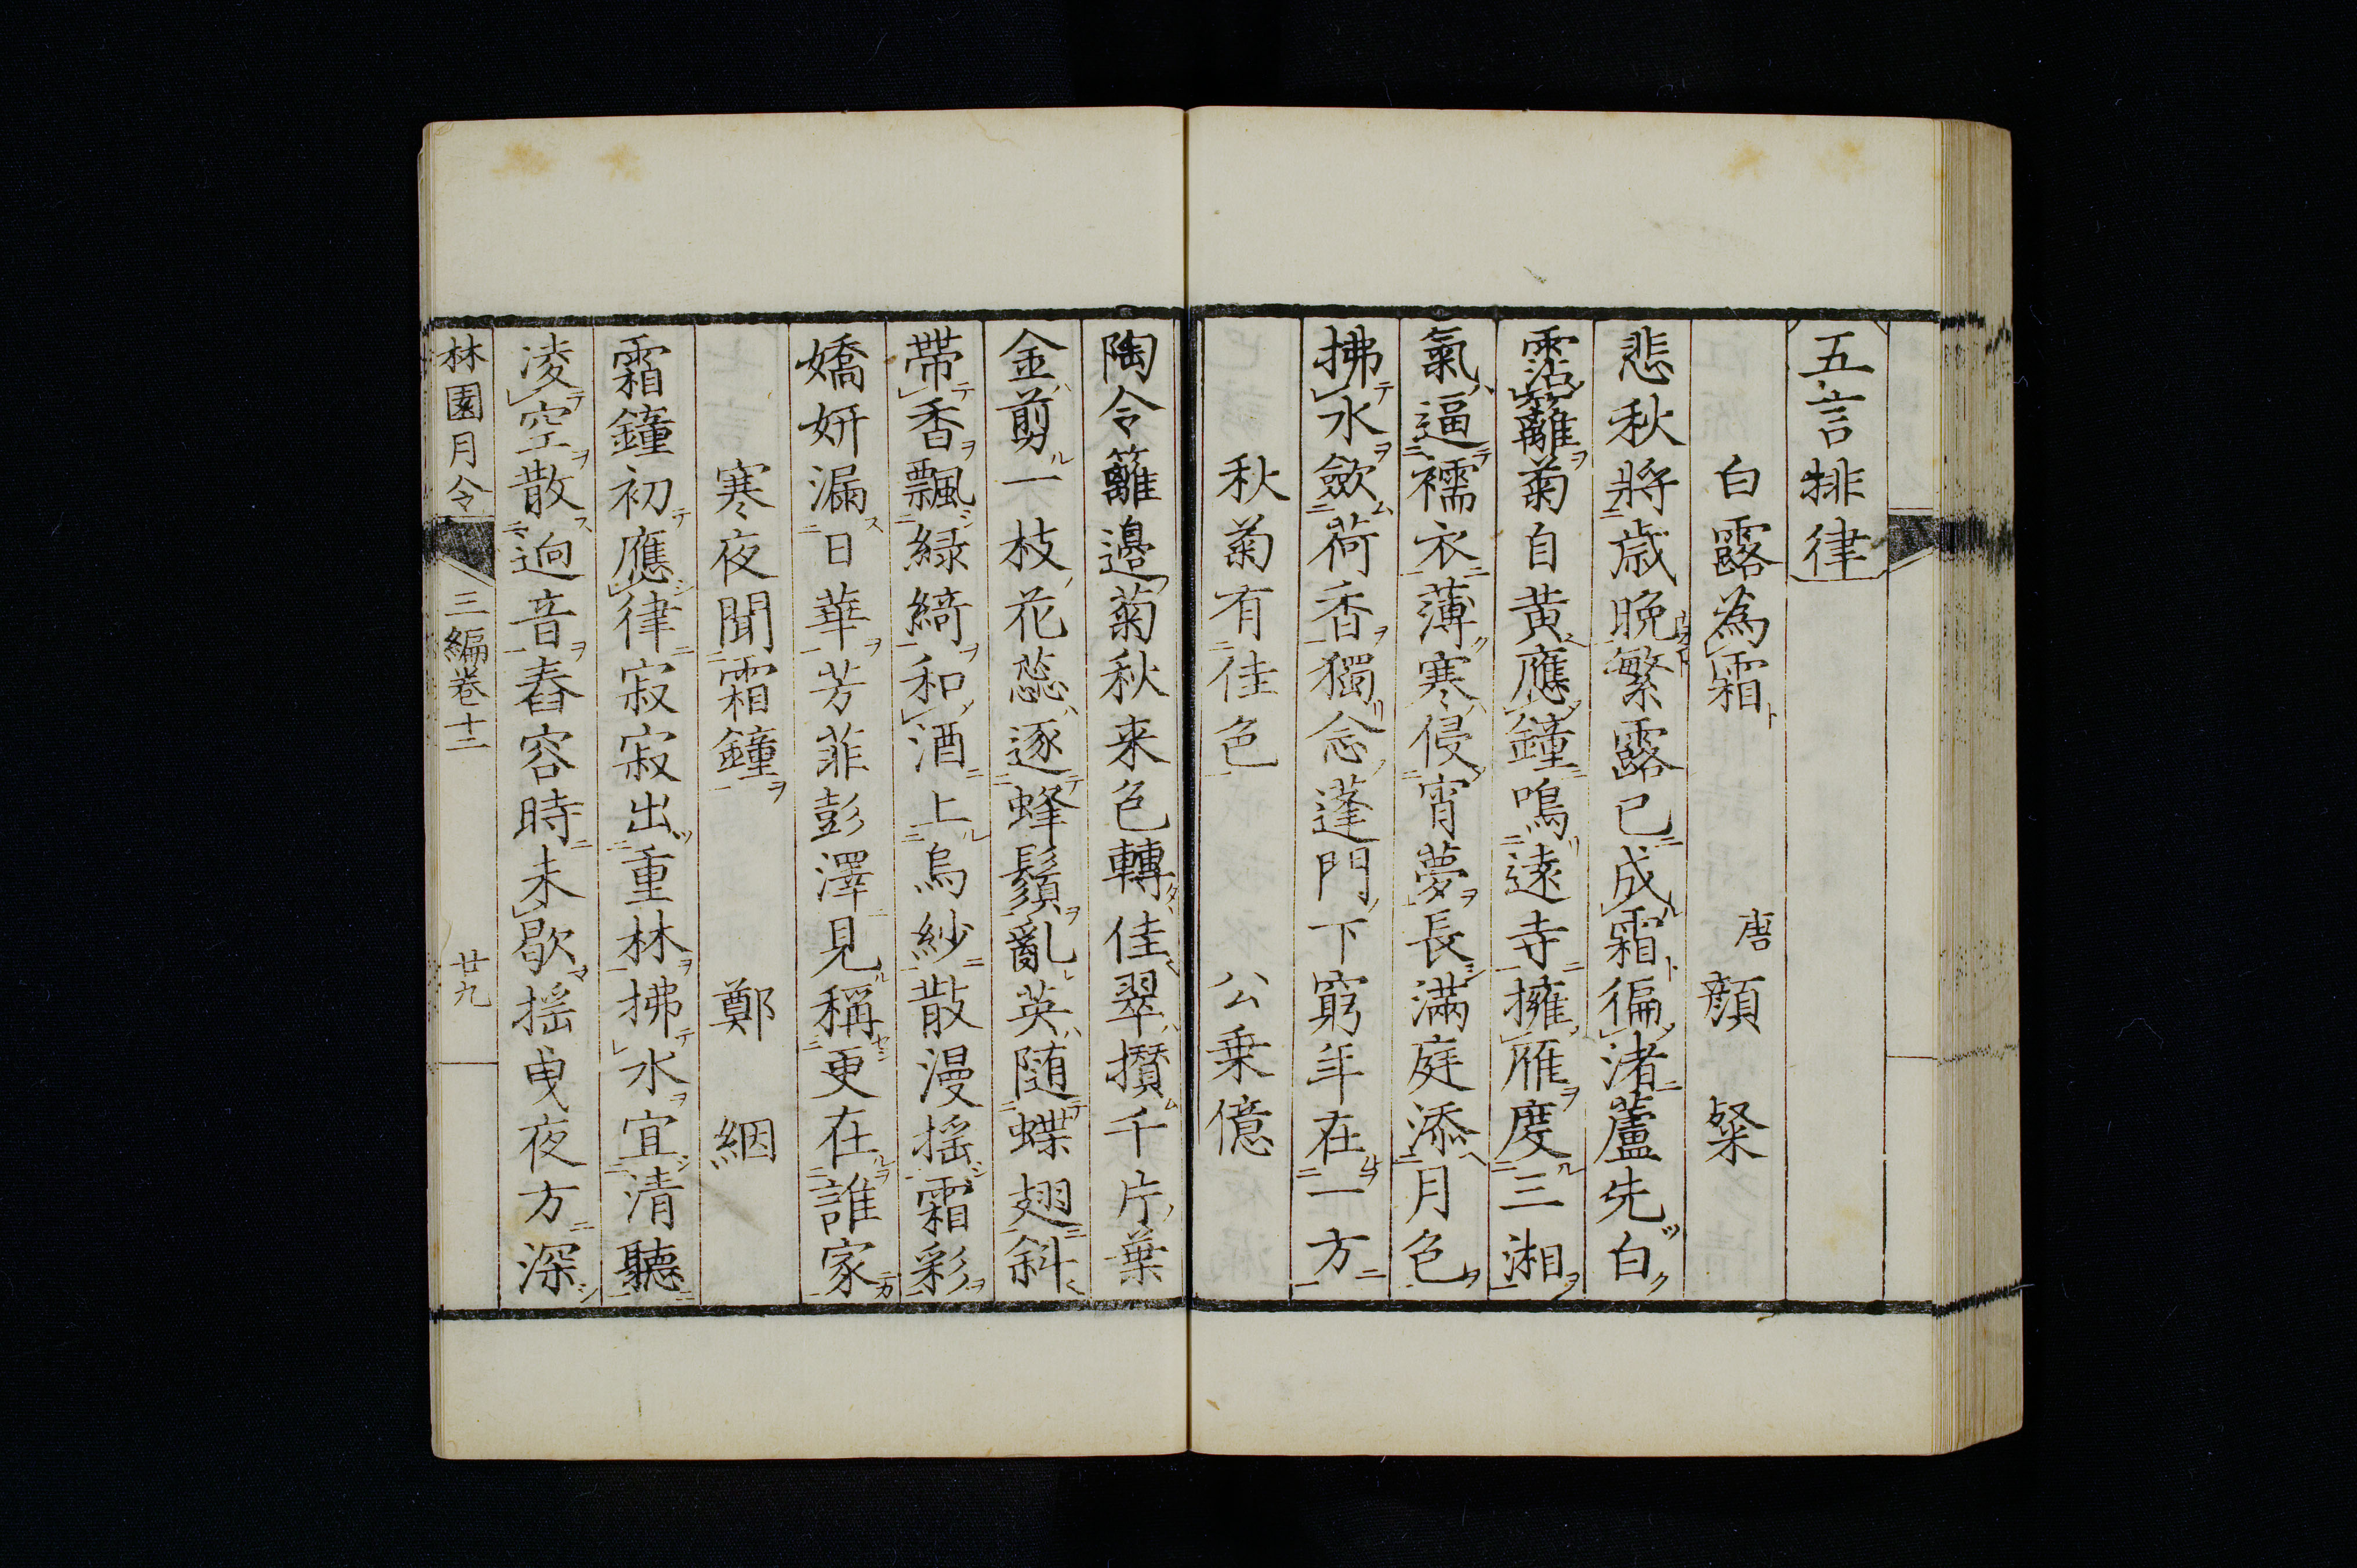 五言排律
白露為霜 唐 顔粲
悲秋將歳晩繁露已成霜徧渚蘆先白
霑籬菊自黄應鐘鳴遠寺擁雁度三湘
氣逼襦衣薄寒侵宵夢長滿庭添月色
拂水歛荷香獨念蓬門下窮年在一方
秋菊有佳色 公乗億
陶令籬邉菊秋来色轉佳翠攅千片葉
金剪一枝花蕊逐蜂鬚亂英随蝶翅斜
帶香飄緑綺和酒上烏紗散漫揺霜彩
嬌妍漏日華芳菲彭澤見稱更在誰家
寒夜聞霜鐘 鄭絪
霜鐘初應律寂寂出重林拂水宜清聽
凌空散迥音舂容時未歇揺曳夜方深
林園月令 三編巻十二 廿九